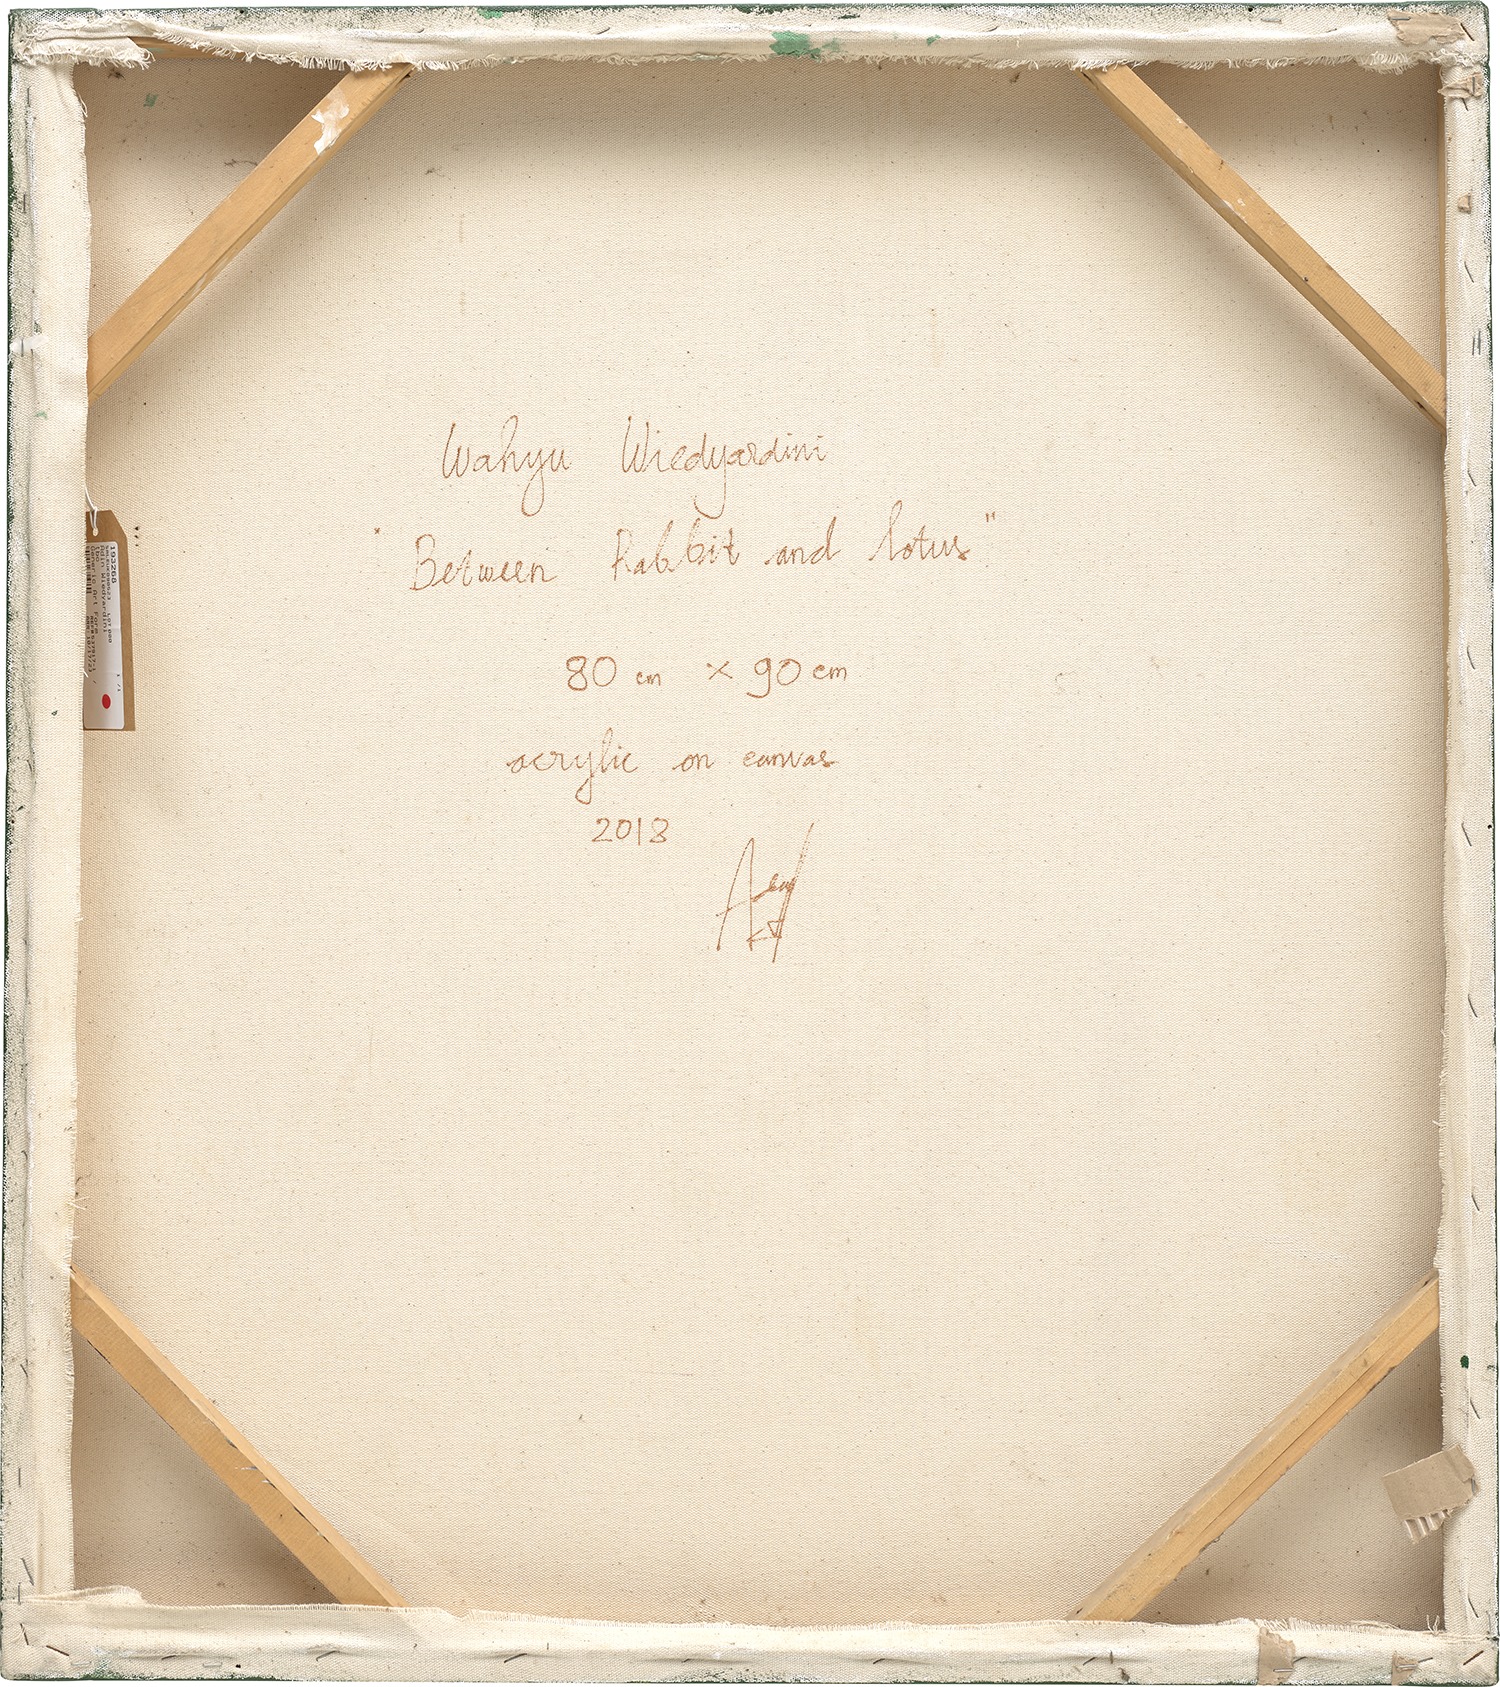 Wahyu Wiedyardini
"Between Rabbit and lotus"
80 cm x 90 cm
acrylic on canvas
2018
193268